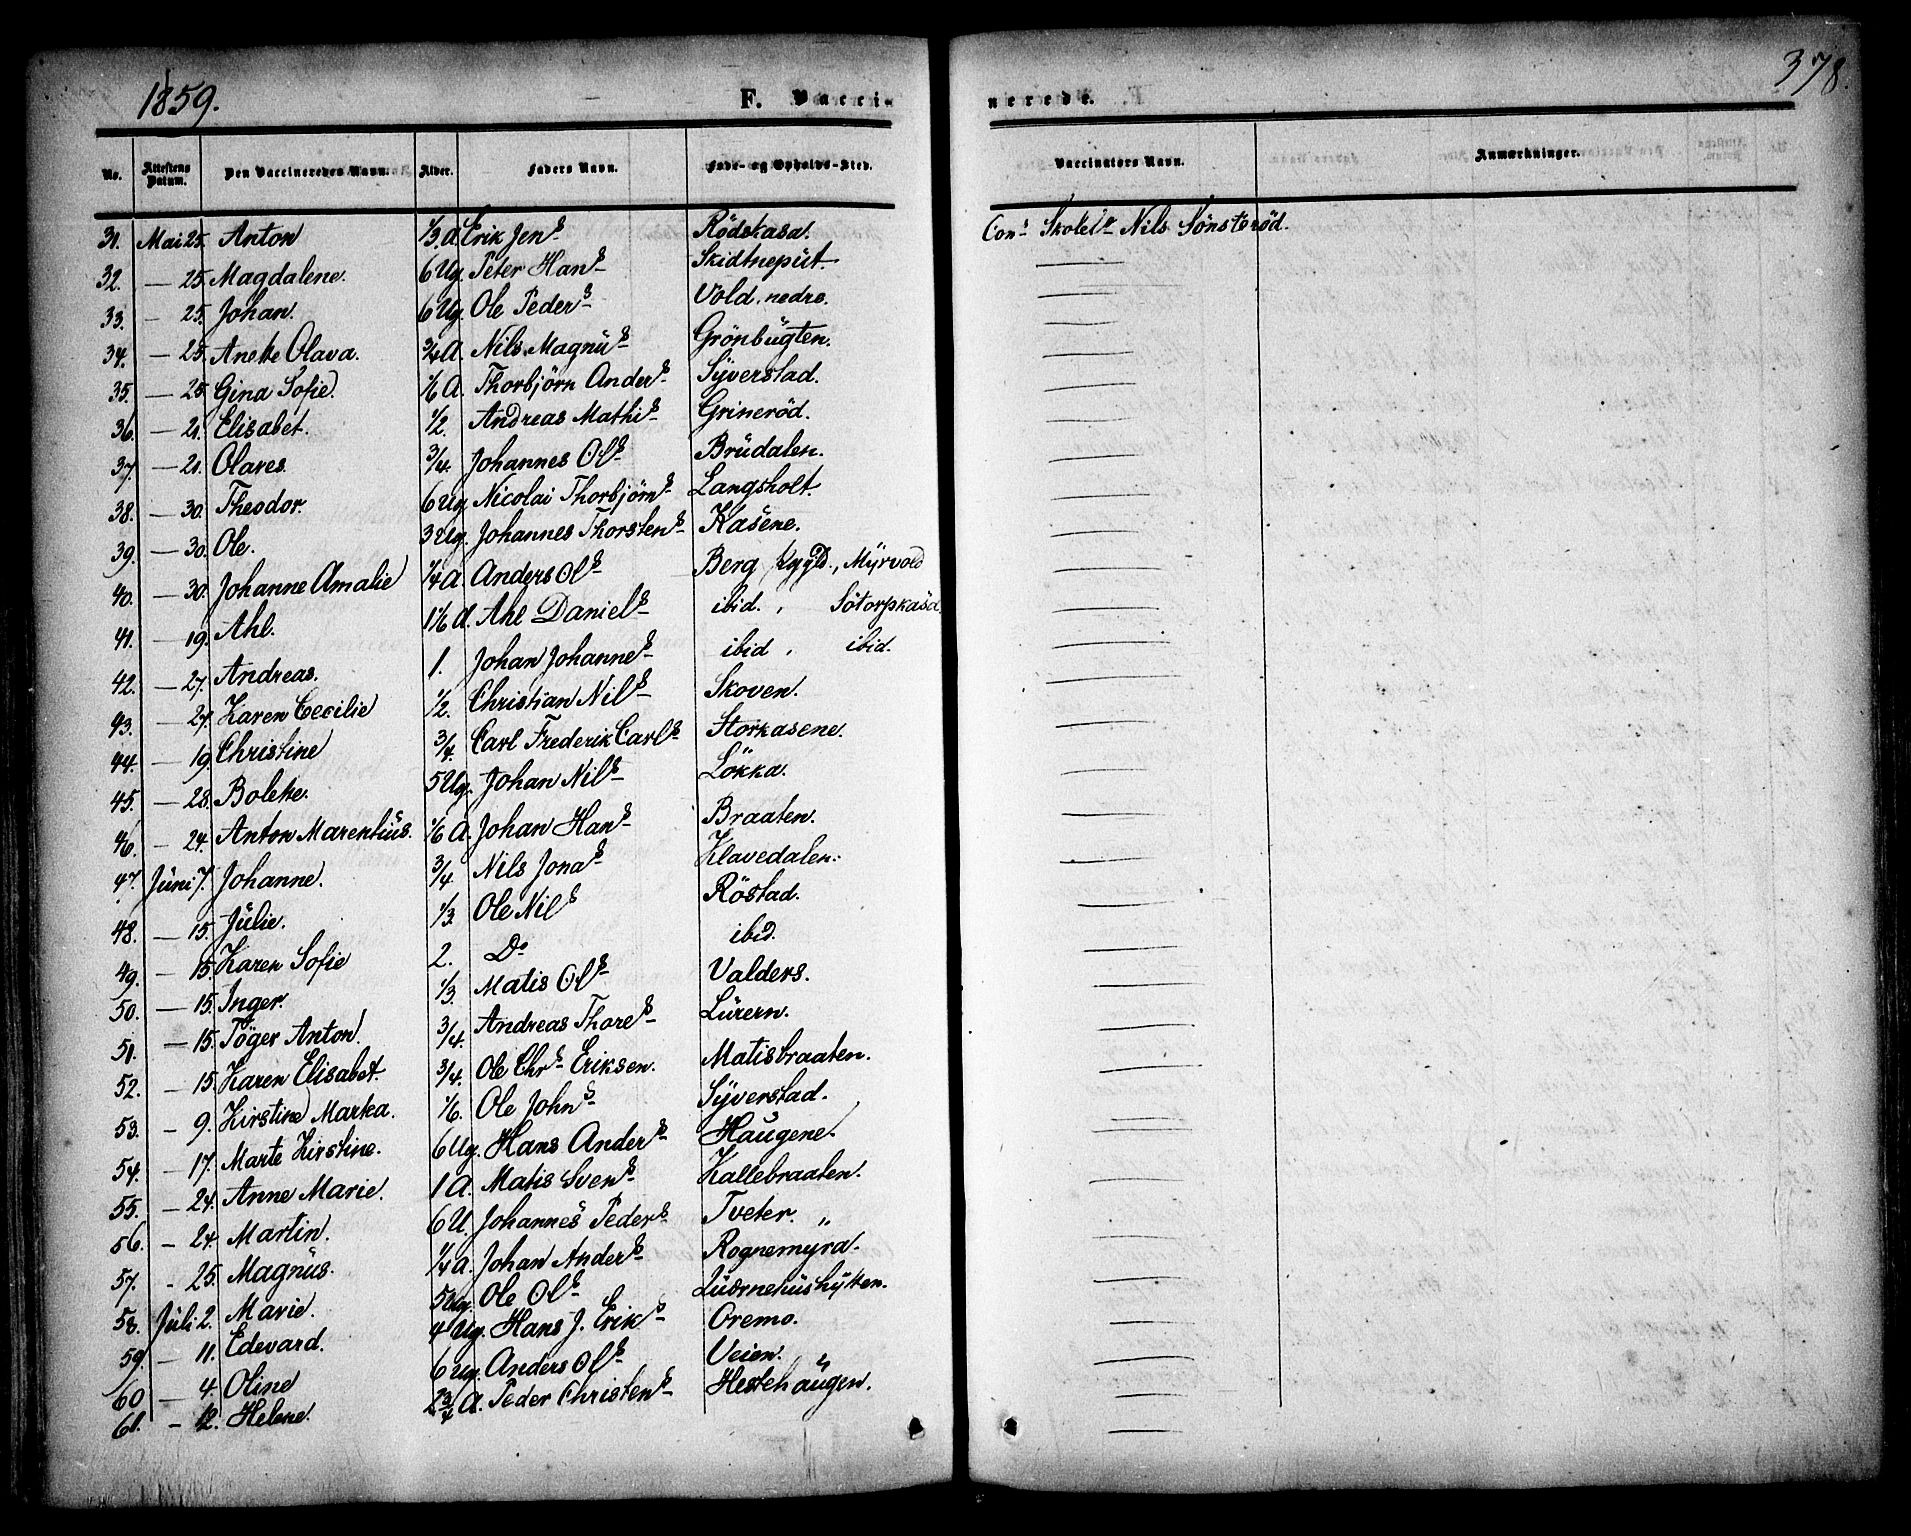 1859. F. Vacci- nerede. 378.
No. Attestens Datum. Den Vaccineredes Navn. Alder. Faders Navn. Føde- og Opholds-Sted. Vaccinators Navn. Anmærkninger.
31. Mai 25. Anton 1/3 A Erik Jens Rödskasa. Con: Skolelr Nils Sönsteröd.
32. — 25. Magdalene. 6 Ug. Peter Hans Skidtneput. —
33. — 25. Johan. 6 Ug. Ole Peders Vold. nedre. —
34. — 25. Anette Olava. 3/4 A Nils Magnüs Grönbügten. —
35. — 25. Gina Sofie. 1/6 A Thorbjörn Anders Syverstad. —
36. — 21. Elisabet. 1/2. Andreas Mathis Grineröd. —
37. — 21. Olaves. 3/4. Johannes Ols Brüdalen. —
38. — 30. Theodor. 6 Ug. Nicolai Thorbjörns Langsholt. —
39. — 30. Ole. 3 Ug. Johannes Thorstens Kasene. —
40. — 30. Johanne Amalie 1/4 A Anders Ols Berg Myrvold —
41. — 19. Ahl. 1 1/6 A. Ahl Daniels ibid. , Sotorpkasa. —
42. — 27. Andreas. 1. Johan Johannes ibid , ibid. —
43. — 27. Karen Cecilie 1/2. Christian Nils Skoven. —
44. — 19. Christine 3/4. Carl Frederik Carls Storkasene. —
45. — 28. Bolette. 5 Ug. Johan Nils Lökka. —
46. — 24. Anton Marentius. 1/6 A. Johan Hans Braaten. —
47. Jüni 7. Johanne. 3/4 Nils Jonas Klavedalen. —
48. — 15. Jülie. 1/3. Ole Nils Röstad. —
49. — 15. Karen Sofie 2. Do ibid. —
50. — 15. Inger. 1/3. Matis Ols Valders. —
51. — 15. Töger Anton. 3/4. Andreas Thores Lürern. —
52. — 15. Karen Elisabet. 3/4. Ole Chrs Eriksen. Matisbraaten. —
53. — 9. Kirstine Marka. 1/6. Ole Johns Syverstad. —
54. — 17. Marte Kirstine. 6 Ug. Hans Anders Haugene. —
55. — 24. Anne Marie. 1 A. Matis Svens Kallebraaten. —
56. — 24. Martin. 6 U. Johannes Peders Tveter. „ —
57. - 25. Magnüs. 1/4 A. Johan Anders Rognemyra. —
58. Jüli 2. Marie. 5 Ug. Ole Ols Luernehushytten. —
59. — 11. Edevard. 4 Ug. Hans J. Eriks Oremo. —
60 — 4 Oline 6 Ug. Anders Ols Veien. —
61. - 12. Helene. 2 3/4 A. Peder Christens Hestehaugen. —